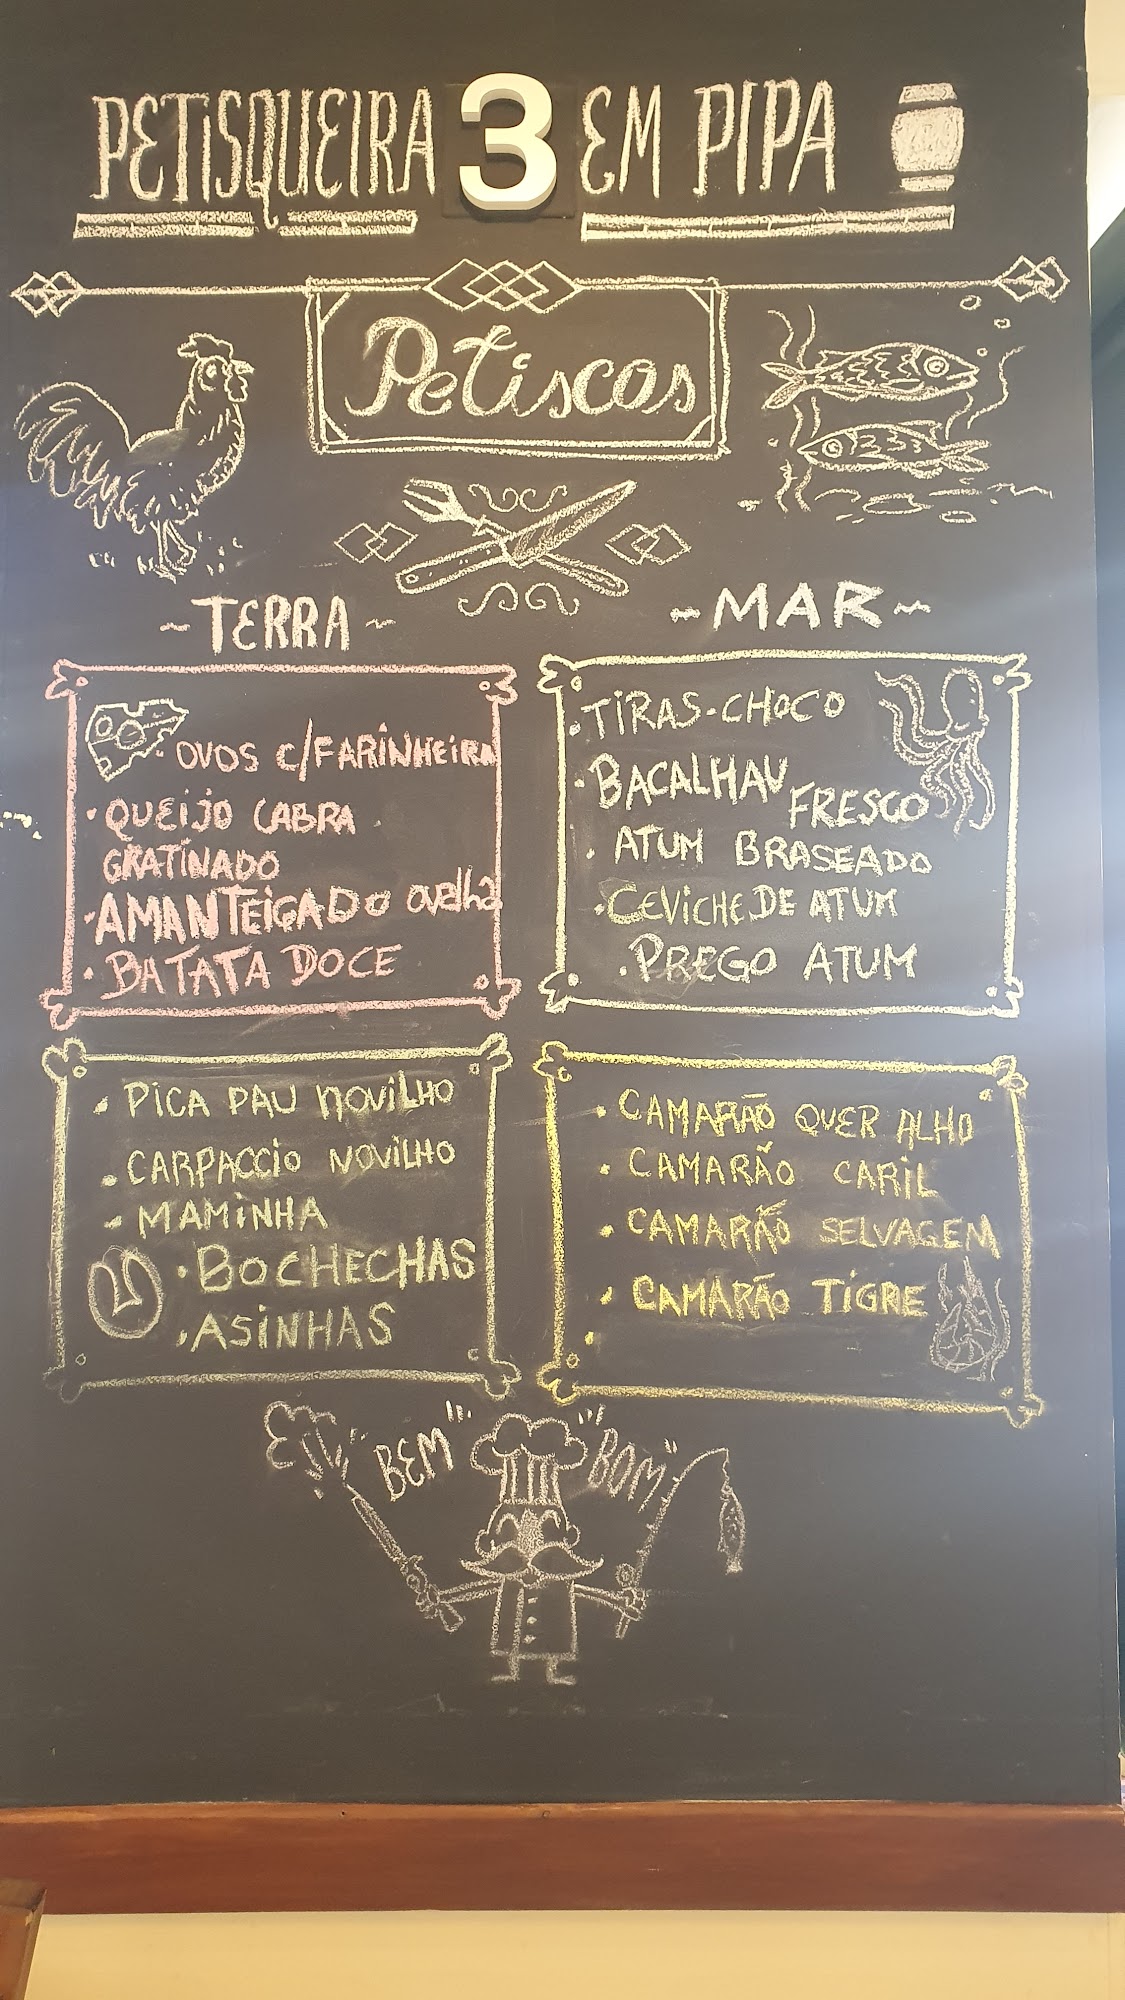 PETISQUEIRA 3 EM PIPA
Petiscos
~TERRA~
· OVOS C/FARINHEIRA
· QUEIJO CABRA
GRATINADO
· AMANTEIGADO ovelha
· BATATA DOCE
~MAR~
· TIRAS-CHOCO
· BACALHAU
FRESCO
· ATUM BRASEADO
· CEVICHE DE ATUM
· PREGO ATUM
· PICA PAU NOVILHO
· CARPACCIO NOVILHO
- MAMINHA
· BOCHECHAS
· ASINHAS
· CAMARÃO QUER ALHO
· CAMARÃO CARIL
· CAMARÃO SELVAGEM
· CAMARÃO TIGRE
"BEM" "BOM"